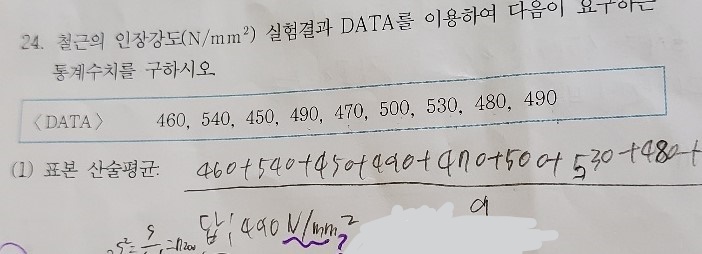 24. 철근의 인장강도(N/mm²) 실험결과 DATA를 이용하여 다음이 요구하는
통계수치를 구하시오
〈DATA〉 460, 540, 450, 490, 470, 500, 530, 480, 490
(1) 표본 산술평균: 460+540+450+490+470+500+530+480+
9
답: 490 N/mm²
?